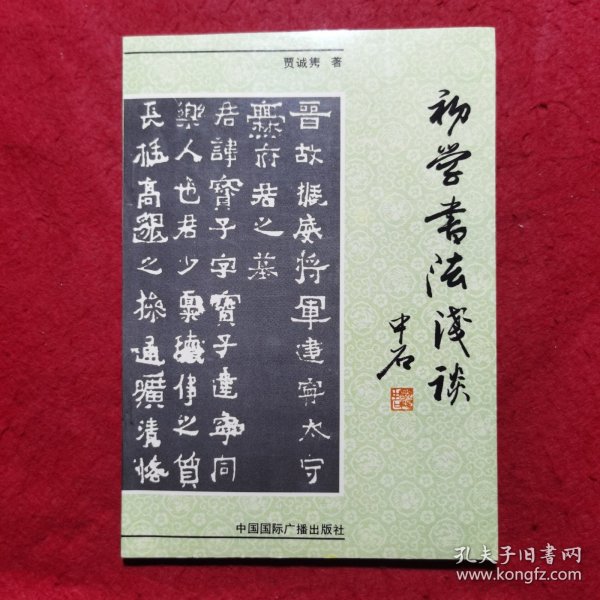 贾诚隽 著
初学书法浅谈
中石
晋故振威将军建宁太守
爨府君之墓
君諱寶子字寶子建寧同
樂人也君少稟瓌偉之質
長挺高邈之操通曠清恪
中国国际广播出版社
孔夫子旧书网
www.kongfz.com